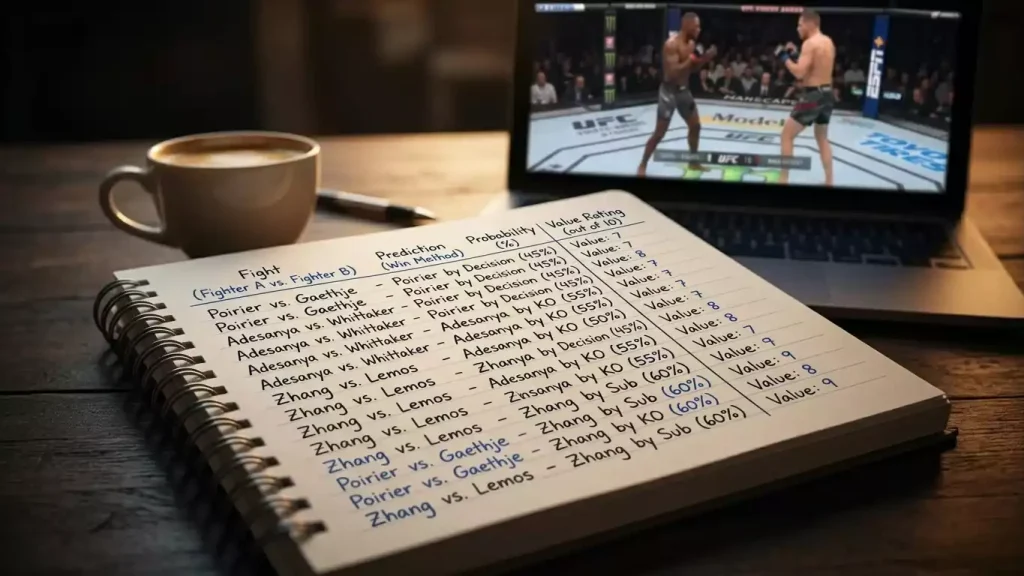 Fight Prediction Probability Value Rating
(Fighter A vs. Fighter B) (Win Method) (%) (out of 10)
Poirier vs. Gaethje - Poirier by Decision (45%) Value: 7
Poirier vs. Gaethje - Poirier by Decision (45%) Value: 7
Adesanya vs. Whittaker - Poirier by Decision (45%) Value: 8
Adesanya vs. Whittaker - Adesanya by KO (55%) Value: 7
Adesanya vs. Whittaker - Adesanya by KO (50%) Value: 7
Zhang vs. Lemos - Zhang by Decision (45%) Value: 8
Zhang vs. Lemos - Adesanya by KO (55%) Value: 8
Zhang vs. Lemos - Znsanya by KO (55%) Value: 7
Zhang
Poirier vs. Gaethje - Zhang by Sub (60%) Value: 9
Poirier vs. Gaethje - Zhang by KO (60%) Value: 8
Zhang vs. Lemos - Zhang by Sub (60%) Value: 9
UFC
Modelo
UFC
UFC
ESPN